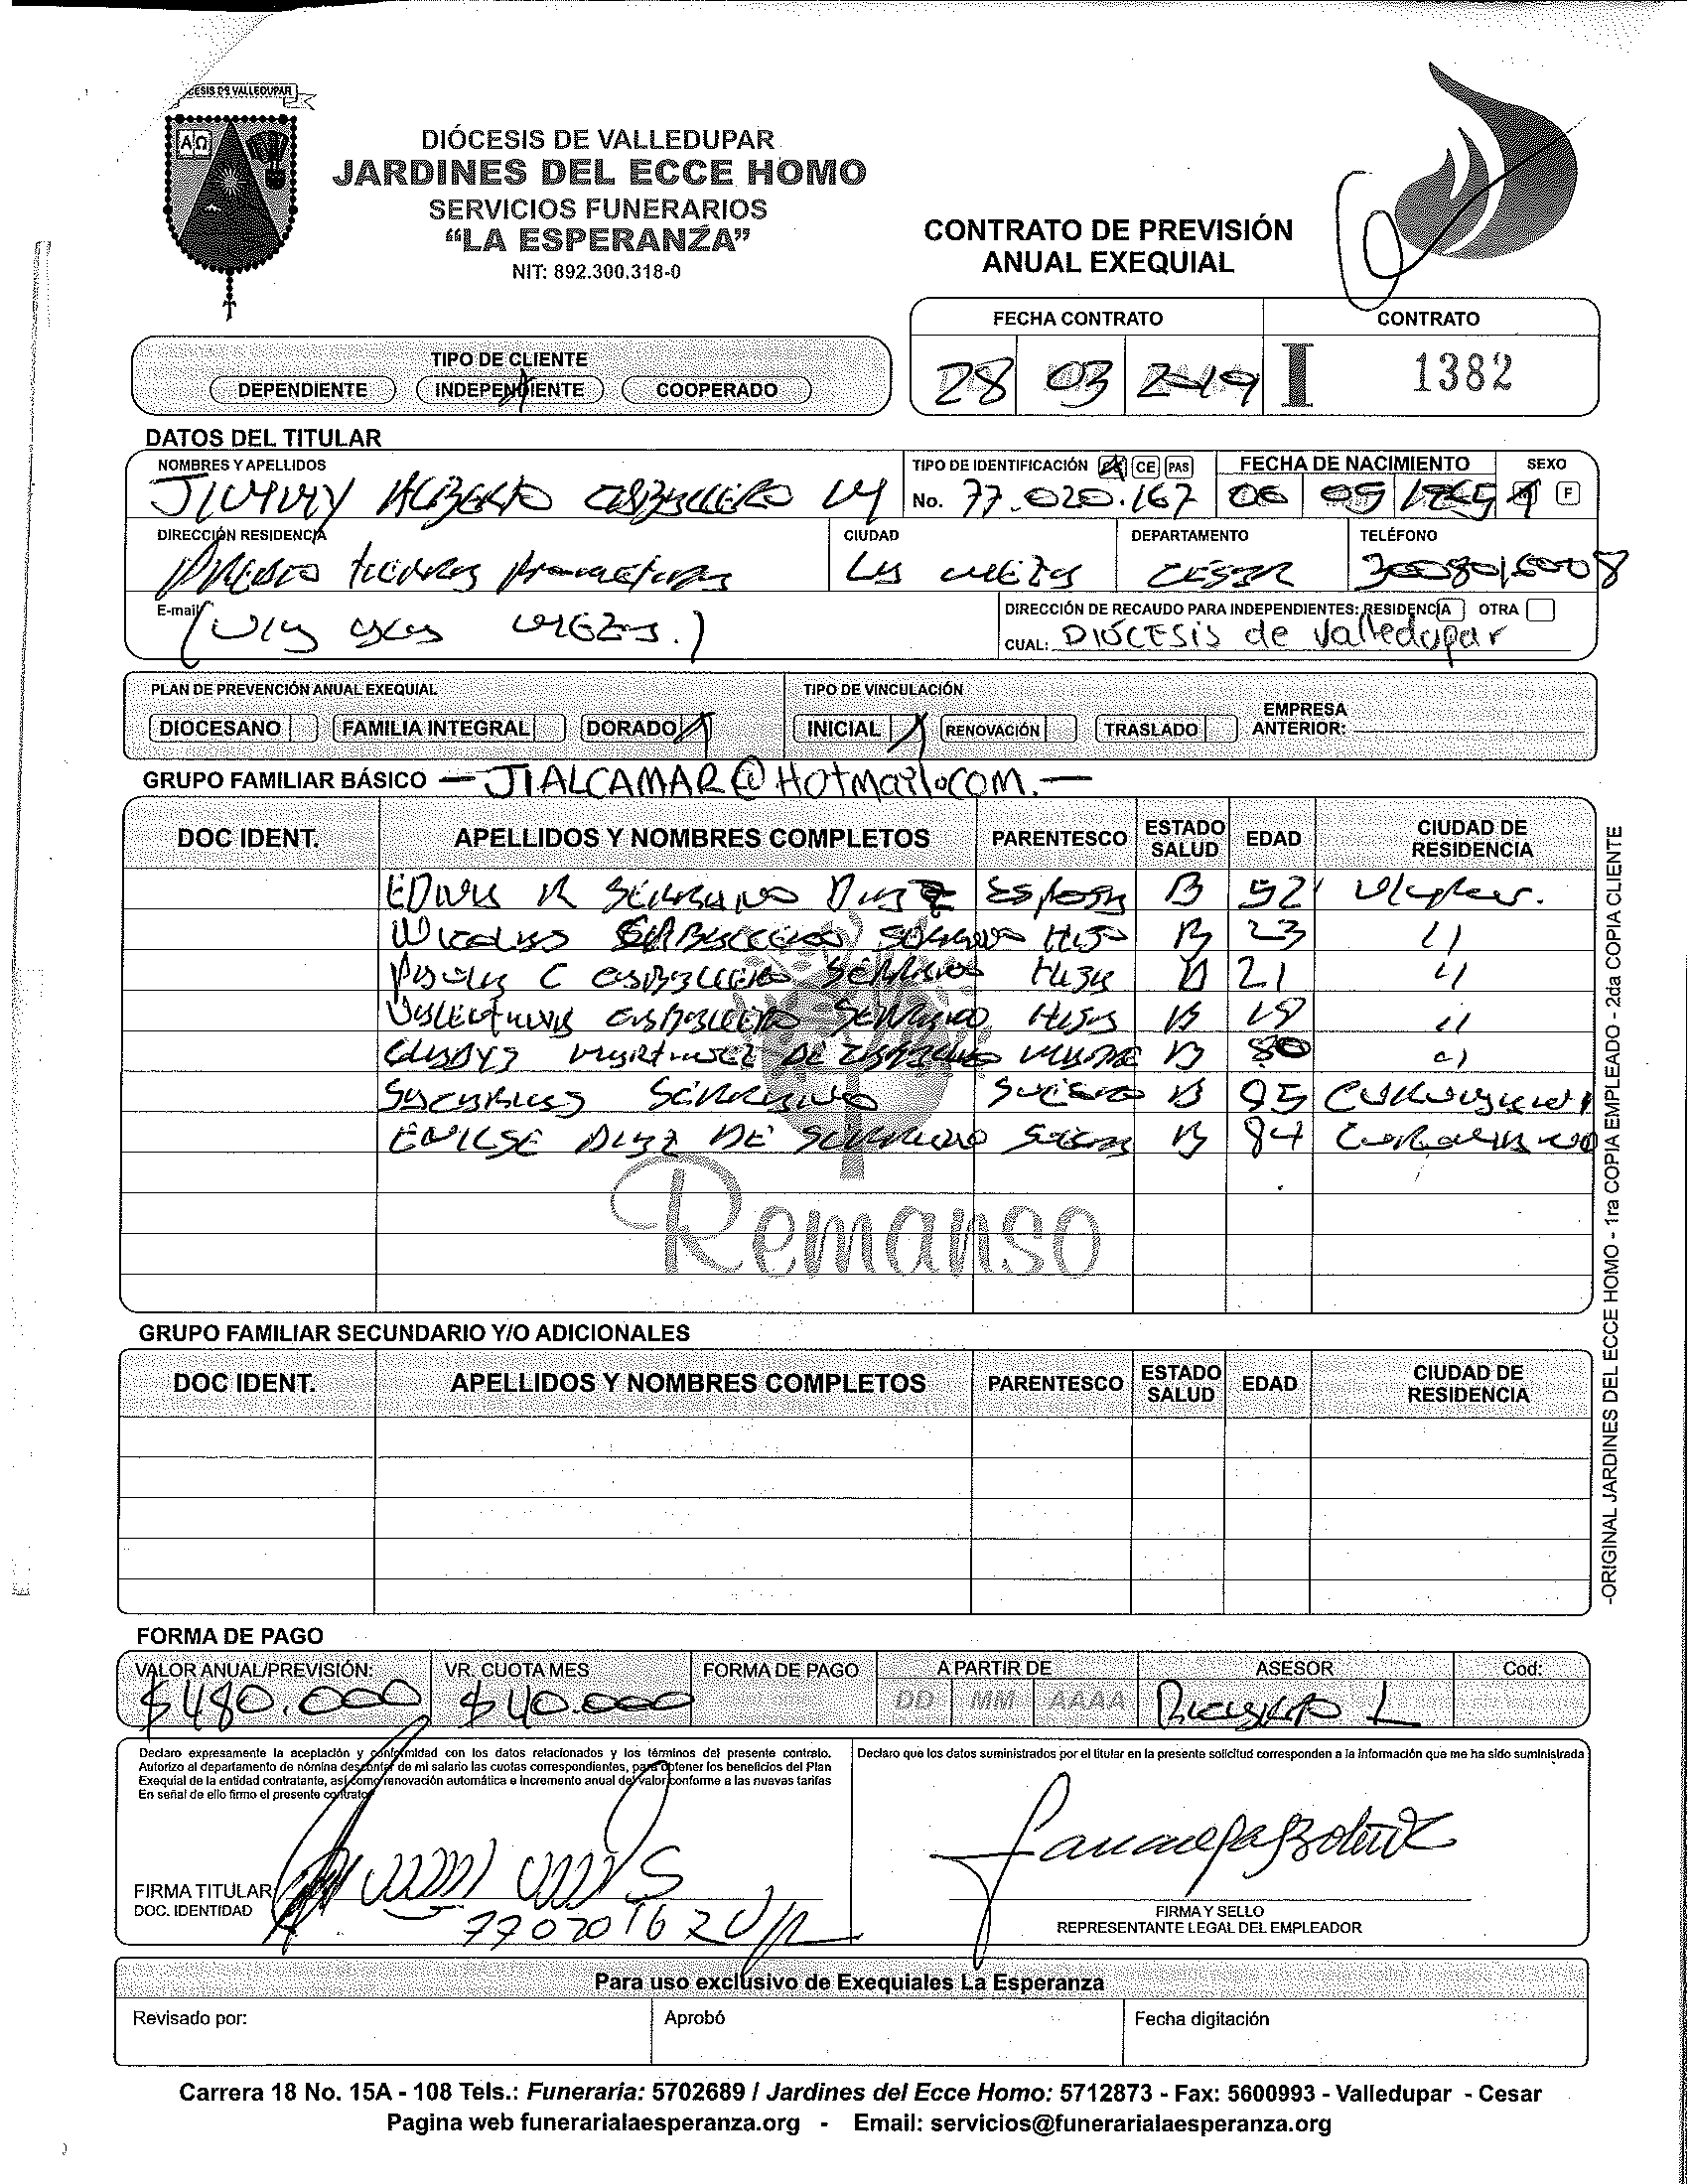 CESIS DE VALLEDUPAR
ΑΩ
DIÓCESIS DE VALLEDUPAR
JARDINES DEL ECCE HOMO
SERVICIOS FUNERARIOS
“LA ESPERANZA”
NIT: 892.300.318-0
CONTRATO DE PREVISIÓN
ANUAL EXEQUIAL
FECHA CONTRATO CONTRATO
28 03 2019 I 1382
TIPO DE CLIENTE
DEPENDIENTE INDEPENDIENTE COOPERADO
DATOS DEL TITULAR
NOMBRES Y APELLIDOS TIPO DE IDENTIFICACIÓN CE PAS FECHA DE NACIMIENTO SEXO
JIMMY ALBERTO CABALLERO M No. 77.020.167 06 05 1965 F
DIRECCIÓN RESIDENCIA CIUDAD DEPARTAMENTO TELÉFONO
CESAR 3008015008
E-mail
DIRECCIÓN DE RECAUDO PARA INDEPENDIENTES: RESIDENCIA OTRA
CUAL: DIÓCESIS de Valledupar
PLAN DE PREVENCIÓN ANUAL EXEQUIAL TIPO DE VINCULACIÓN
DIOCESANO FAMILIA INTEGRAL DORADO INICIAL RENOVACIÓN TRASLADO EMPRESA ANTERIOR:
GRUPO FAMILIAR BÁSICO - JIALCAMAR@HOtmail.COM. -
DOC IDENT. APELLIDOS Y NOMBRES COMPLETOS PARENTESCO ESTADO SALUD EDAD CIUDAD DE RESIDENCIA
SERRANO DIAZ Esposa B 52
CABALLERO SERRANO HIJO B 23 "
C CABALLERO SERRANO HIJA B 21 "
CABALLERO SERRANO HIJA B "
GLADYS MARTINEZ DE CABALLERO MADRE B 80 "
SERRANO SUEGRO B
ENILSE DIAZ DE SERRANO SUEGRA B 84
Remanso
GRUPO FAMILIAR SECUNDARIO Y/O ADICIONALES
DOC IDENT. APELLIDOS Y NOMBRES COMPLETOS PARENTESCO ESTADO SALUD EDAD CIUDAD DE RESIDENCIA
-ORIGINAL JARDINES DEL ECCE HOMO - 1ra COPIA EMPLEADO - 2da COPIA CLIENTE
FORMA DE PAGO
VALOR ANUAL/PREVISIÓN: VR. CUOTA MES FORMA DE PAGO A PARTIR DE ASESOR Cod:
$480.000 $40.000 DD MM AAAA
Declaro expresamente la aceptación y conformidad con los datos relacionados y los términos del presente contrato.
Autorizo al departamento de nómina descontar de mi salario las cuotas correspondientes, para obtener los beneficios del Plan
Exequial de la entidad contratante, así como renovación automática e incremento anual del valor conforme a las nuevas tarifas
En señal de ello firmo el presente contrato
Declaro que los datos suministrados por el titular en la presente solicitud corresponden a la información que me ha sido suministrada
FIRMA TITULAR
DOC. IDENTIDAD
FIRMA Y SELLO
REPRESENTANTE LEGAL DEL EMPLEADOR
Para uso exclusivo de Exequiales La Esperanza
Revisado por: Aprobó Fecha digitación
Carrera 18 No. 15A - 108 Tels.: Funeraria: 5702689 / Jardines del Ecce Homo: 5712873 - Fax: 5600993 - Valledupar - Cesar
Pagina web funerarialaesperanza.org - Email: servicios@funerarialaesperanza.org